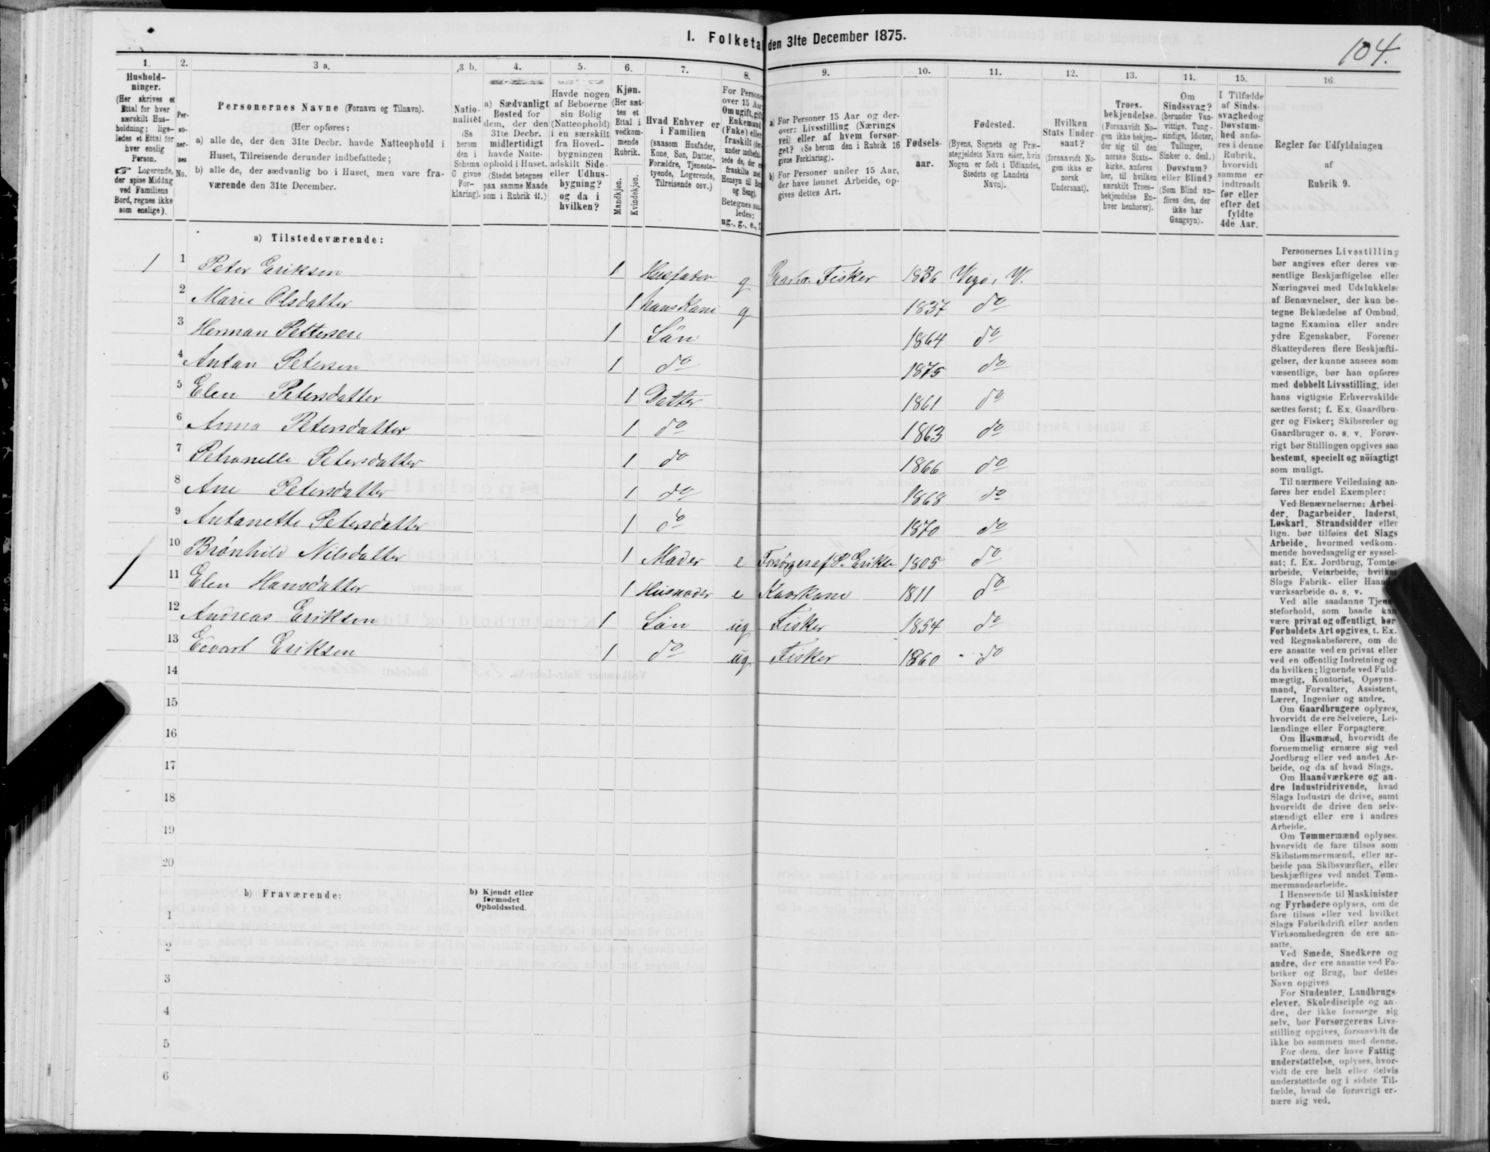 1. Folketa den 31te December 1875.
104.
1.
Hushold-
ninger.
(Her skrives et
Ettal for hver
særskilt Hus-
holdning; lige-
ledes et Ettal for
hver enslig
Person.
Logerende,
der spise Middag
ved Familiens
Bord, regnes ikke
som enslige).
2.
Per-
so-
ner-
nes
No.
3 a.
Personernes Navne (Fornavn og Tilnavn).
(Her opføres:
a) alle de, der den 31te Decbr. havde Natteophold i
Huset, Tilreisende derunder indbefattede;
b) alle de, der sædvanlig bo i Huset, men vare fra-
værende den 31te December.
3 b.
Natio-
nalitet
(Se
herom
den i
Schema
G givne
For-
klaring).
4.
a) Sædvanligt
Bosted for
dem, der den
31te Decbr.
midlertidigt
havde Natte-
ophold i Huset.
(Stedet betegnes
paa samme Maade
som i Rubrik 11.)
5.
Havde nogen
af Beboerne
sin Bolig
(Natteophold)
i en særskilt
fra Hoved-
bygningen
adskilt Side-
eller Udhus-
bygning?
og da i
hvilken?
6.
Kjøn.
(Her sæt-
tes et
Ettal i
vedkom-
mende
Rubrik.
Mandkjøn.
Kvindekjøn.
7.
Hvad Enhver er
i Familien
(saasom Husfader,
Kone, Søn, Datter,
Forældre, Tjeneste-
tyende, Logerende,
Tilreisende osv.)
8.
For Persone
over 15 Aar
Om ugift, gift
Enkemand
(Enke) elle
fraskilt
9.
a) For Personer 15 Aar og der-
over: Livsstilling (Nærings
vei) eller af hvem forsør-
get? (Se herom den i Rubrik 16
givne Forklaring).
b) For Personer under 15 Aar,
der have lønnet Arbeide, op-
gives dettes Art.
10.
Fødsels-
aar.
11.
Fødested.
(Byens, Sognets og Præ-
stegjeldets Navn eier, hvis
Nogen er født i Udlandet,
Stedets og Landets
Navn).
12.
Hvilken
Stats Under
saat?
(forsaavidt No-
gen ikke er
norsk
Undersaat).
13.
Troes-
bekjendelse.
(Forsaavidt No-
gen ikke bekjen-
der sig til den
norske Stats-
kirke, anføres
her, til hvilken
særskilt Troes-
bekjendelse En-
hver henhører).
14.
Om
Sindssvag?
(herunder Van-
vittige, Tung-
sindige, Idioter,
Tullinger,
Sinker o. desl.)
Døvstum?
eller Blind?
(Som Blind an-
føres den, der
ikke har
Gangsyn).
15.
I Tilfælde
af Sinds-
svaghedog
Døvstum-
hed anfø-
res i denne
Rubrik,
hvorvidt
samme er
indtraadt
før eller
efter det
fyldte
4de Aar.
16.
Regler for Udfyldningen
af
Rubrik 9.
a) Tilstedeværende:
1 1 Peter Eriksen 1 Husfader g Gaardbr. Fisker 1836 Vegø, V.
2 Marie Olsdatter 1 hans Kone g 1837 do
3 Herman Pettersen 1 Søn 1864 do
4 Antan Petersen 1 do 1875 do
5 Elen Petersdatter 1 Datter 1861 do
6 Anna Petersdatter 1 do 1863 do
7 Petronelle Petersdatter 1 do 1866 do
8 Ane Petersdatter 1 do 1868 do
9 Antonette Petersdatter 1 do 1870 do
10 Brønhild Nilsdatter 1 Moder e Forsørges af P. Erikse 1805 do
1 11 Elen Hansdatter 1 Husmoder e Kaarkone 1811 do
12 Andreas Eriksen 1 Søn ug Fisker 1854 do
13 Edvart Eriksen 1 do ug. Fisker 1860 do
14
15
16
17
18
19
20
b) Fraværende:
b) Kjendt eller
formodet
Opholdssted.
1
2
3
4
5
6
Personernes Livsstilling
bør angives efter deres væ-
sentlige Beskjæftigelse eller
Næringsvei med Udelukkelse
af Benævnelser, der kun be-
tegne Beklædelse af Ombud,
tagne Examina eller andre
ydre Egenskaber. Forener
Skatteyderen flere Beskjæfti-
gelser, der kunne ansees som
væsentlige, bør han opføres
med dobbelt Livsstilling, idet
hans vigtigste Erhvervskilde
sættes først; f. Ex. Gaardbru-
ger og Fisker; Skibsreder og
Gaardbruger o. s. v. Forøv-
rigt bør Stillingen opgives saa
bestemt, specielt og nöiagtigt
som muligt.
Til nærmere Veiledning an-
føres her endel Exempler:
Ved Benævnelserne: Arbei-
der, Dagarbeider, Inderst,
Løskarl, Strandsidder eller
lign. bør tilføies det Slags
Arbeide, hvormed vedkom-
mende hovedsagelig er syssel-
sat; f. Ex. Jordbrug, Tomte-
arbeide, Veiarbeide, hvilket
Slags Fabrik- eller Haand-
værksarbeide o. s. v.
Ved alle saadanne Tjene-
steforhold, som baade kan
være privat og offentligt, bør
Forholdets Art opgives, f. Ex.
ved Regnskabsførere, om de
ere ansatte ved en privat eller
ved en offentlig Indretning og
da hvilken; lignende ved Fuld-
mægtig, Kontorist, Opsyns-
mand, Forvalter, Assistent,
Lærer, Ingeniør og andre.
Om Gaardbrugere oplyses,
hvorvidt de ere Selveiere, Lei-
lændinge eller Forpagtere.
Om Husmænd, hvorvidt de
fornemmelig ernære sig ved
Jordbrug eller ved andet Ar-
beide, og da af hvad Slags.
Om Haandværkere og an-
dre Industridrivende, hvad
Slags Industri de drive, samt
hvorvidt de drive den selv-
stændigt eller ere i andres
Arbeide.
Om Tømmermænd oplyses,
hvorvidt de fare tilsøs som
Skibstømmermænd, eller ar-
beide paa Skibsværfter, eller
beskjæftiges ved andet Tøm-
mermandsarbeide.
I Henseende til Maskinister
og Fyrbødere oplyses, om de
fare tilsøs eller ved hvilket
Slags Fabrikdrift eller anden
Virksomhedsgren de ere an-
satte.
Ved Smede, Snedkere og
andre, der ere ansatte ved Fa-
briker og Brug, bør dettes
Navn opgives
For Studenter, Landbrugs-
elever, Skoledisciple og an-
dre, der ikke forsørge sig
selv, bør Forsørgerens Livs-
stilling opgives, forsaavidt de
ikke bo sammen med denne.
For dem, der have Fattig-
understøttelse, oplyses, hvor-
vidt de ere helt eller delvis
understøttede og i sidste Til-
fælde, hvad de forøvrigt er-
nære sig ved.